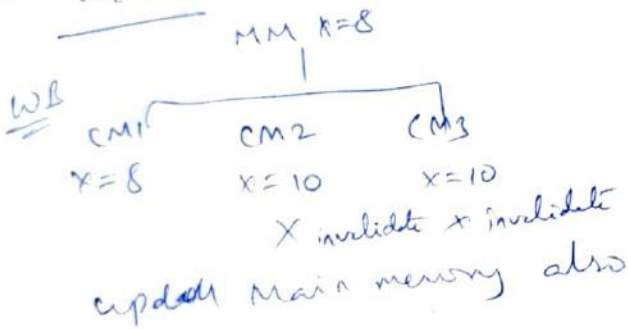 MM X=8
WB
CM1 CM2 CM3
X=8 X=10 X=10
X invalidate X invalidate
Main memory also